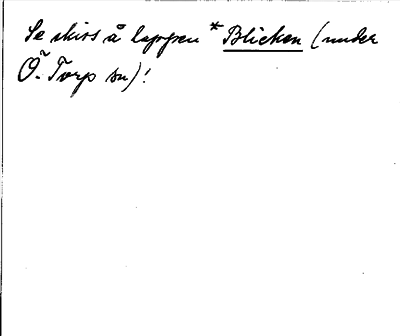 Se skiss å lappen * Blicken (under
Ö. Torp sn)!